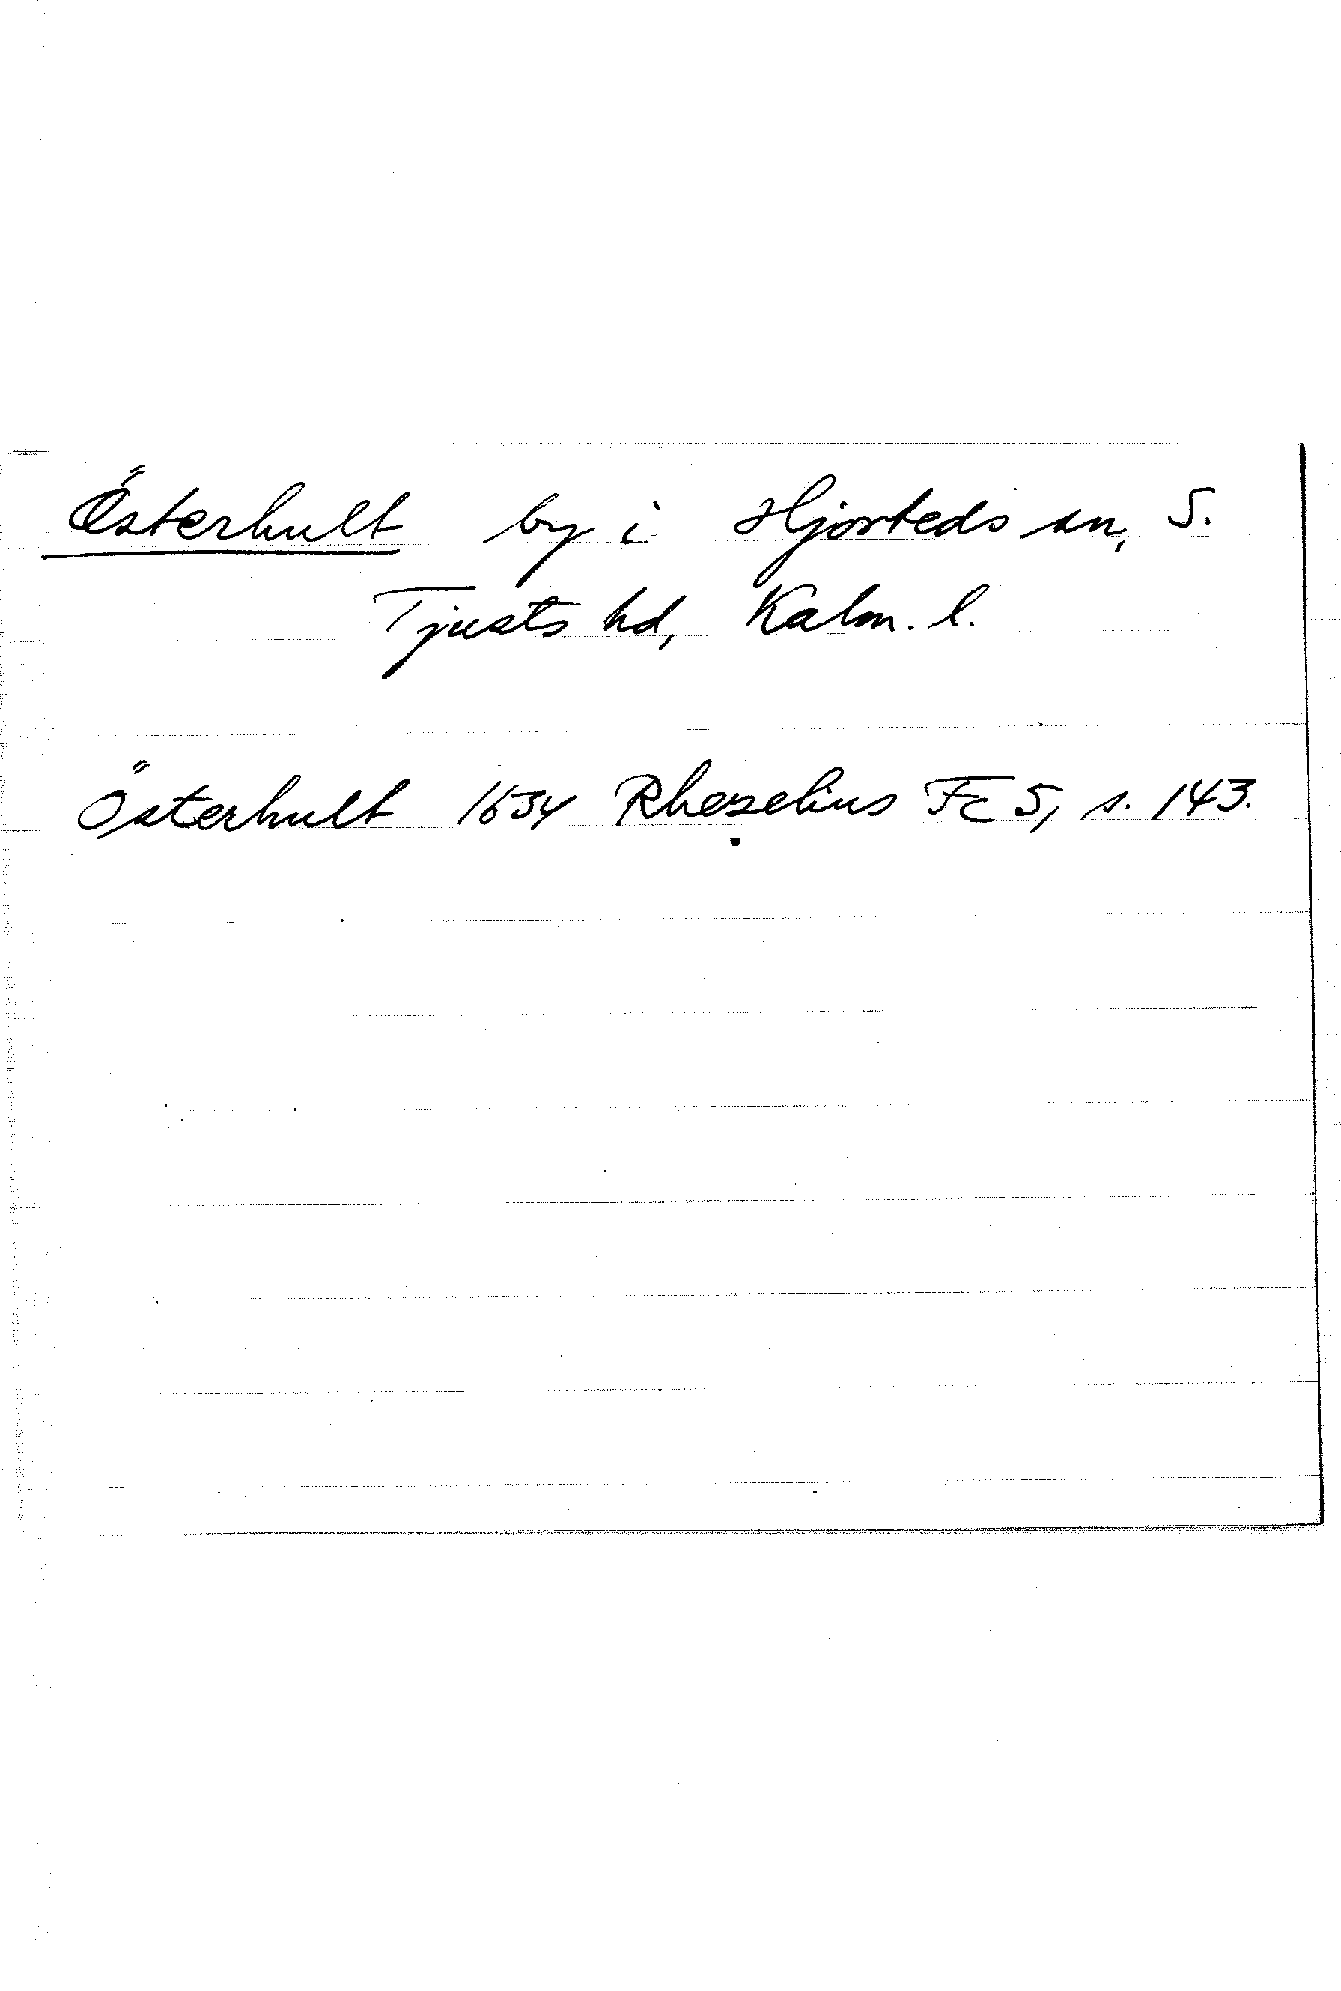 Österhult by i Hjorteds sn, S.
Tjusts hd, Kalm. l.
Österhult 1634 Rhezelius Fc 5, s. 143.